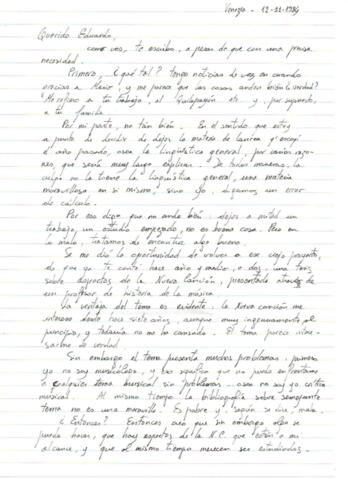 Venezia - 12-11-1984
Querido Eduardo,
como ves, te escribo, a pesar de que con una precisa
necesidad.
Primero, ¿qué tal? tengo noticias de vez en cuando
gracias a y me parece que las cosas andan bien ¿verdad?
Me refiero a tu trabajo, al Quilapayún etc. y, por supuesto,
a tu familia.
Por mi parte, no tan bien. En el sentido que estoy
a punto de decidir de dejar la materia de laurea q' escogí
el año pasado, osea la Lingüística general, por varias razo-
nes, que sería muy largo explicar. De todas maneras, la
culpa no la tiene la lingüística general, una materia
maravillosa en sí misma, sino yo, digamos un error
de cálculo.
Por eso digo que no ando bien, dejar a mitad un
trabajo, un estudio empezado, no es buena cosa. Pero en
lo malo, tratamos de encontrar algo bueno.
Se me dio la oportunidad de volver a ese viejo proyecto,
de que ya te conté, hace año y medio, o dos, una tesis
sobre aspectos de la Nueva Canción, presentada a través de
un profesor de historia de la música.
La ventaja del tema es evidente, la nueva canción me
interesa desde hace siete años, aunque muy ingenuamente al
principio, y todavía no me ha cansado. El tema parece intere-
sarlos de verdad.
Sin embargo el tema presenta muchos problemas, primero
yo no soy musicólogo, y eso significa que no puedo enfrentarme
a cualquier tema musical sin problemas... osea no soy yo crítico
musical. Al mismo tiempo la bibliografía sobre semejante
tema no es una maravilla. Es pobre y, según se dice, mala.
¿Entonces? Entonces creo que sin embargo algo se
puede hacer, que hay aspectos de la N.C. que están a mi
alcance, y que al mismo tiempo merecen ser estudiados.